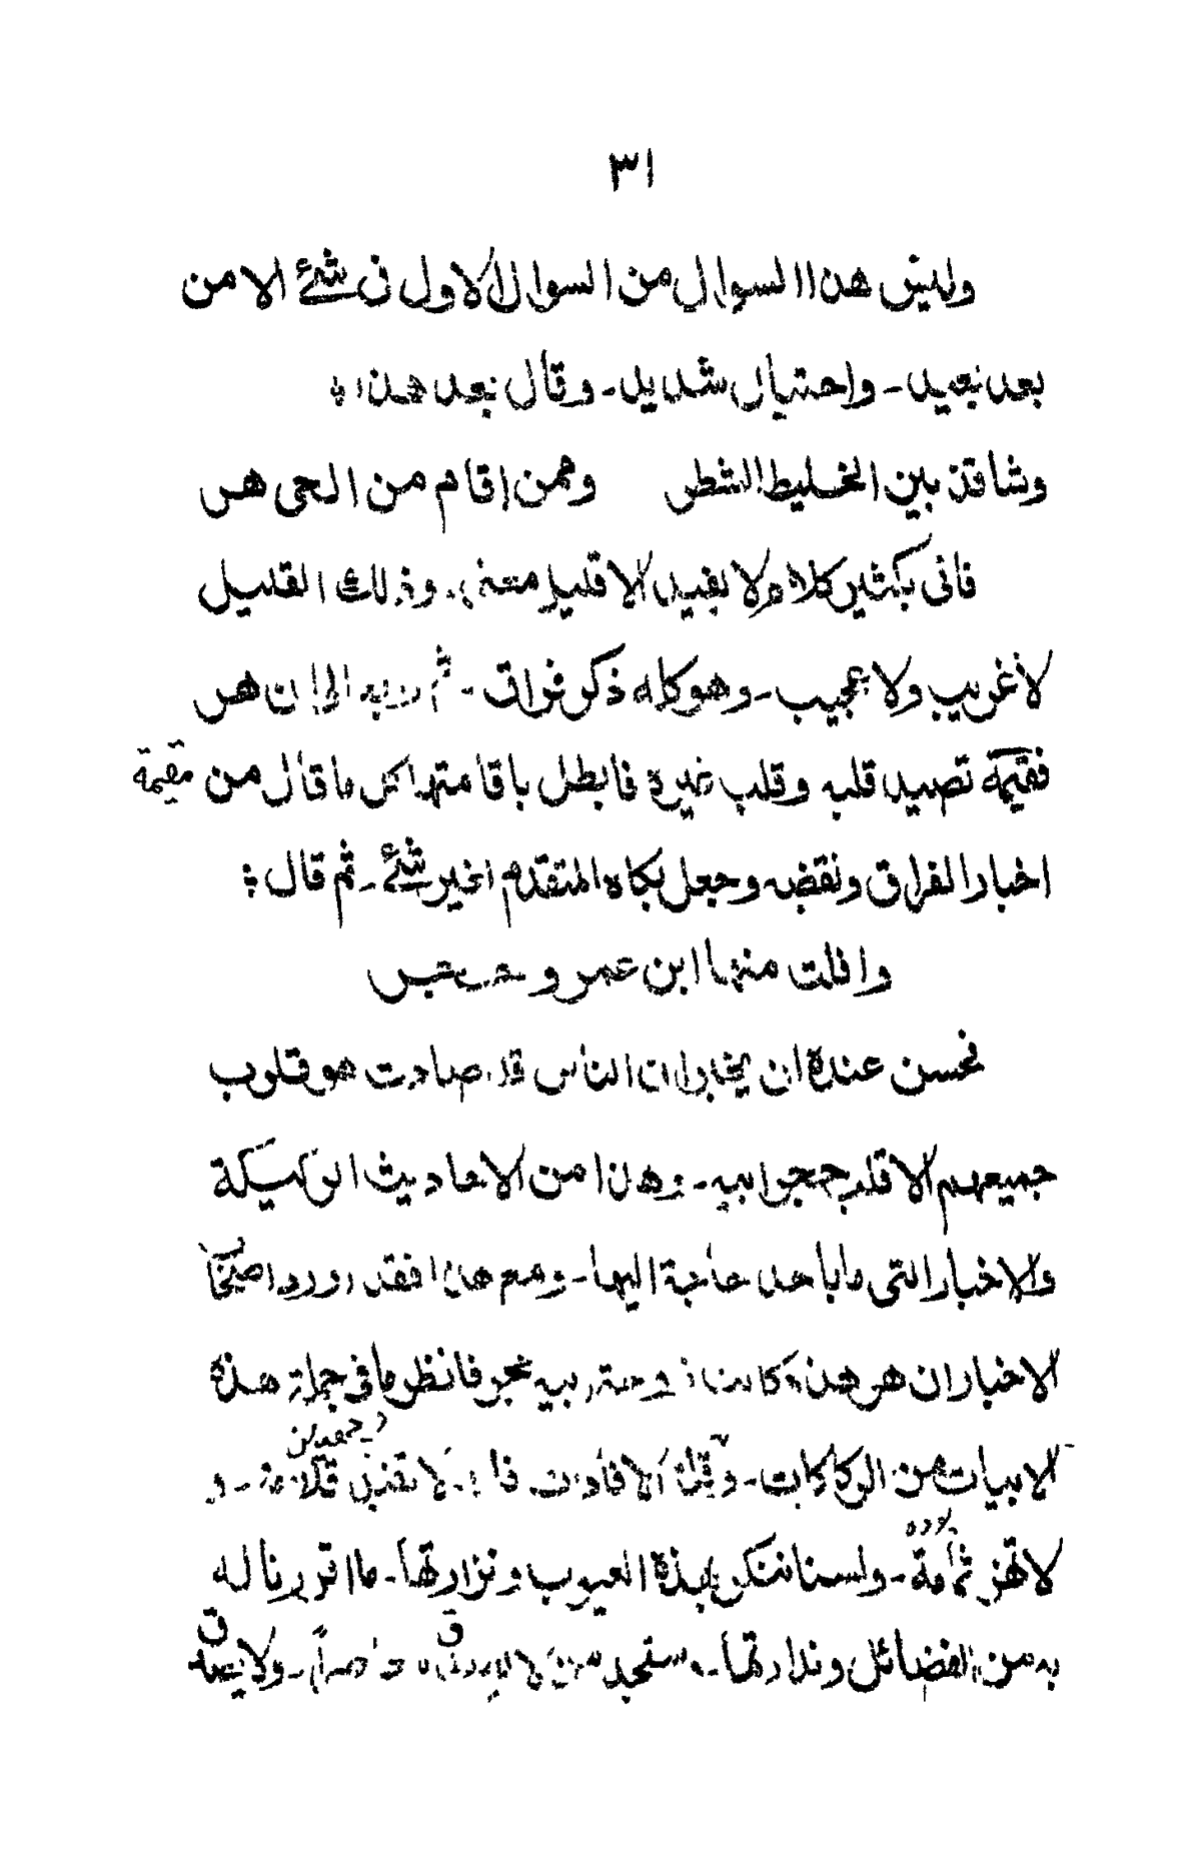 ٣١
وليس هذا السوال من السوال الاول فى شئ الا من
بعد بعيد - واحتيال شديد - وقال بعد هذا :
وشاقك بين الخليط الشطر وممن اقام من الحى هر
فاتى بكثير كلام لا يفيد الا قليل معنى - وذلك القليل
لا غريب ولا عجيب - وهو كله ذكر فراق - ثم الى ان هر
فقيمة تصيد قلبه وقلب غيره فابطل باقامتها كل ما قال من مقيمة
اخبار الفراق ونقضه وجعل بكاه المتقدم لغير شئ - ثم قال :
وافلت منها ابن عمرو حجر
فحسن عنده ان يخبر ان الناس قد صادت هر قلوب
جميعهم الا قلب حجر ابيه - وهذا من الاحاديث الركيكة
والاخبار التى ما باحد حاجة اليها - ومع هذا فقد اورد اصحاب
الاخبار ان هر هذه كانت زوجة ابيه حجر فانظر ما فى جملة هذه
الابيات من الركاكات - وقلة الافادات لا تفيد قلامة - و
لا تهز ثمامة - ولسنا ننكر بهذه العيوب ونزارتها - ما اقررنا له
به من الفضائل وندارتها - ستجد من لا ولا